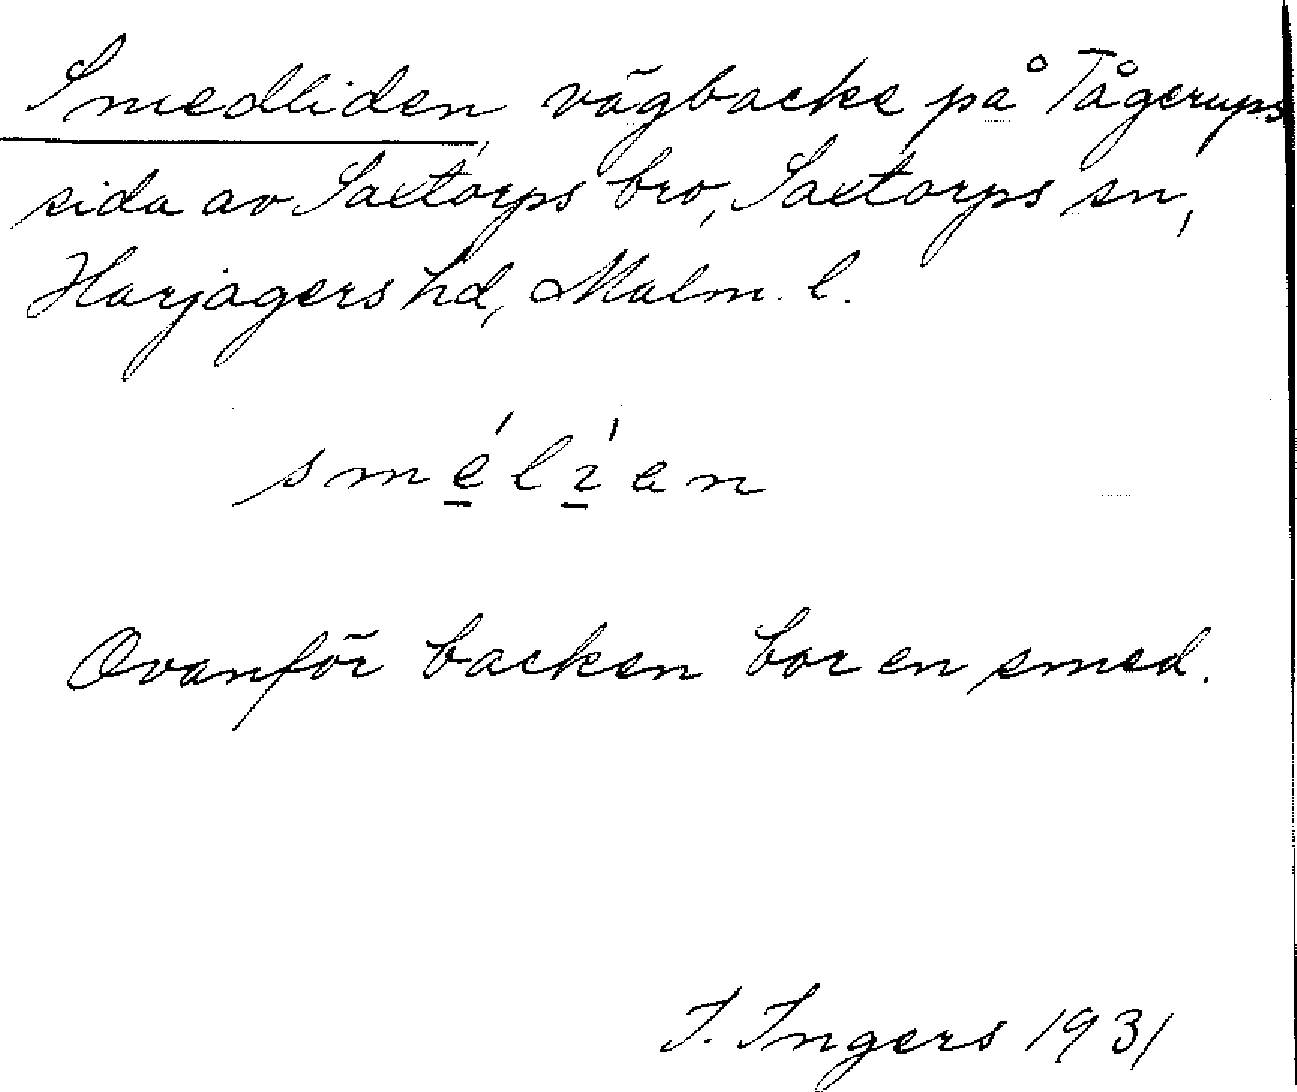 Smedliden, vägbacke på Tågerups
sida av Saxtorps bro, Saxtorps sn,
Harjagers hd, Malm. l.
smé̱lí̱en
Ovanför backen bor en smed.
I. Ingers 1931